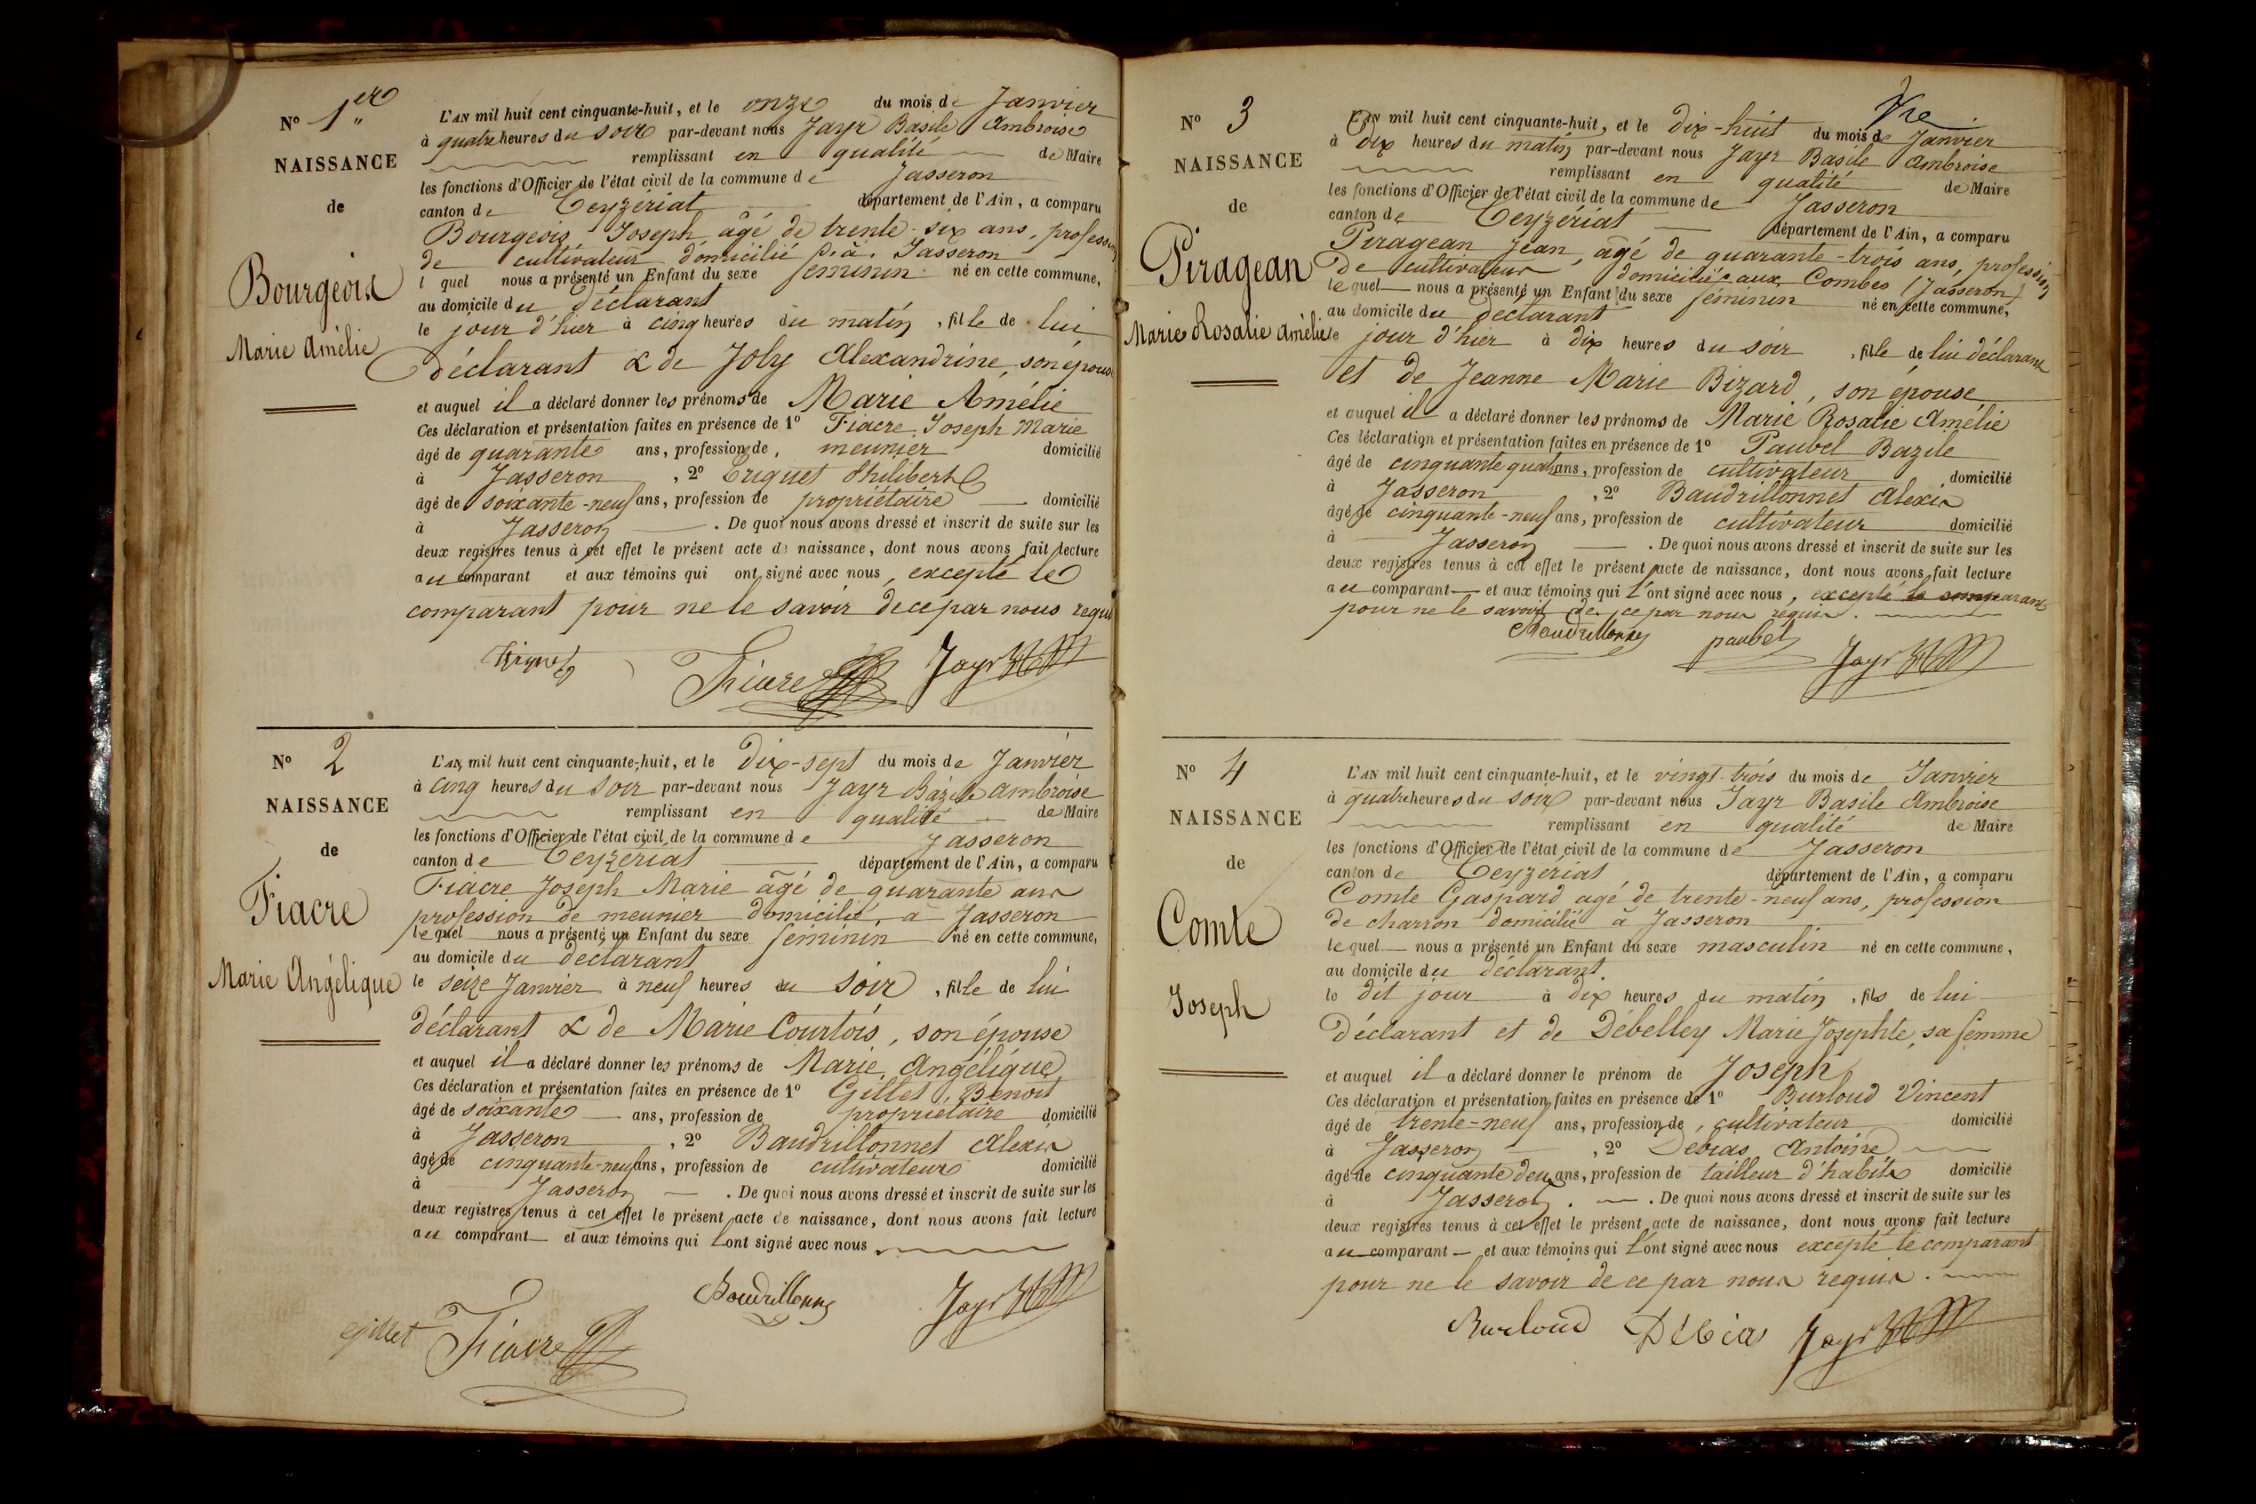 No 1er
NAISSANCE
de
Bourgeois
Marie Amélie
L'AN mil huit cent cinquante-huit, et le onze du mois de Janvier
à quatre heures du soir par-devant nous Jayr Basile Ambroise
remplissant en qualité de Maire
les fonctions d'Officier de l'état civil de la commune de Jasseron
canton de Ceyzériat département de l'Ain, a comparu
Bourgeois Joseph âgé de trente-six ans, profession
de cultivateur domicilié à Jasseron
l quel nous a présenté un Enfant du sexe féminin né en cette commune,
au domicile du déclarant
le jour d'hier à cinq heures du matin, fille de lui
déclarant & de Joly Alexandrine, son épouse
et auquel il a déclaré donner les prénoms de Marie Amélie
Ces déclaration et présentation faites en présence de 1º Fiacre Joseph Marie
âgé de quarante ans, profession de, meunier domicilié
à Jasseron, 2º Criquet Philibert
âgé de soixante-neuf ans, profession de propriétaire domicilié
à Jasseron. De quoi nous avons dressé et inscrit de suite sur les
deux registres tenus à cet effet le présent acte de naissance, dont nous avons fait lecture
au comparant et aux témoins qui ont signé avec nous, excepté le
comparant pour ne le savoir de ce par nous requis
Fiacre Jayr
No 2
NAISSANCE
de
Fiacre
Marie Angélique
L'AN mil huit cent cinquante-huit, et le dix-sept du mois de Janvier
à cinq heures du soir par-devant nous Jayr Bazile Ambroise
remplissant en qualité de Maire
les fonctions d'Officier de l'état civil de la commune de Jasseron
canton de Ceyzériat département de l'Ain, a comparu
Fiacre Joseph Marie âgé de quarante ans
profession de meunier domicilié à Jasseron
lequel nous a présenté un Enfant du sexe féminin né en cette commune,
au domicile du déclarant
le seize Janvier à neuf heures du soir, fille de lui
déclarant & de Marie Courtois, son épouse
et auquel il a déclaré donner les prénoms de Marie Angélique
Ces déclaration et présentation faites en présence de 1º Gillet Benoit
âgé de soixante ans, profession de propriétaire domicilié
à Jasseron, 2º Baudrillonnet Alexis
âgé de cinquante-neuf ans, profession de cultivateur domicilié
à Jasseron. De quoi nous avons dressé et inscrit de suite sur les
deux registres tenus à cet effet le présent acte de naissance, dont nous avons fait lecture
au comparant et aux témoins qui l'ont signé avec nous
Baudrillonne Jayr
gillet Fiacre
No 3
NAISSANCE
de
Piragean
Marie Rosalie Amélie
L'AN mil huit cent cinquante-huit, et le dix-huit du mois de Janvier
à dix heures du matin par-devant nous Jayr Basile Ambroise
remplissant en qualité de Maire
les fonctions d'Officier de l'état civil de la commune de Jasseron
canton de Ceyzériat département de l'Ain, a comparu
Piragean Jean, âgé de quarante-trois ans, profession
de cultivateur domicilié aux Combes (Jasseron)
lequel nous a présenté un Enfant du sexe féminin né en cette commune,
au domicile du déclarant
le jour d'hier à dix heures du soir, fille de lui déclarant
et de Jeanne Marie Bizard, son épouse
et auquel il a déclaré donner les prénoms de Marie Rosalie Amélie
Ces déclaration et présentation faites en présence de 1º Paubel Bazile
âgé de cinquante quatre ans, profession de cultivateur domicilié
à Jasseron, 2º Baudrillonnet Alexis
âgé de cinquante-neuf ans, profession de cultivateur domicilié
à Jasseron. De quoi nous avons dressé et inscrit de suite sur les
deux registres tenus à cet effet le présent acte de naissance, dont nous avons fait lecture
au comparant et aux témoins qui l'ont signé avec nous, excepté le comparant
pour ne le savoir de ce par nous requis.
Baudrillonne paubel Jayr
No 4
NAISSANCE
de
Comte
Joseph
L'AN mil huit cent cinquante-huit, et le vingt-trois du mois de Janvier
à quatre heures du soir par-devant nous Jayr Basile Ambroise
remplissant en qualité de Maire
les fonctions d'Officier de l'état civil de la commune de Jasseron
canton de Ceyzériat département de l'Ain, a comparu
Comte Gaspard agé de trente-neuf ans, profession
de charron domicilié à Jasseron
lequel nous a présenté un Enfant du sexe masculin né en cette commune,
au domicile du déclarant.
le dit jour à dix heures du matin, fils de lui
déclarant et de Débelley Marie Josephte, sa femme
et auquel il a déclaré donner le prénom de Joseph
Ces déclaration et présentation faites en présence de 1º Burloud Vincent
âgé de trente-neuf ans, profession de, cultivateur domicilié
à Jasseron, 2º Debias Antoine
âgé de cinquante deux ans, profession de tailleur d'habits domicilié
à Jasseron. De quoi nous avons dressé et inscrit de suite sur les
deux registres tenus à cet effet le présent acte de naissance, dont nous avons fait lecture
au comparant et aux témoins qui l'ont signé avec nous excepté le comparant
pour ne le savoir de ce par nous requis.
Burloud Débia Jayr